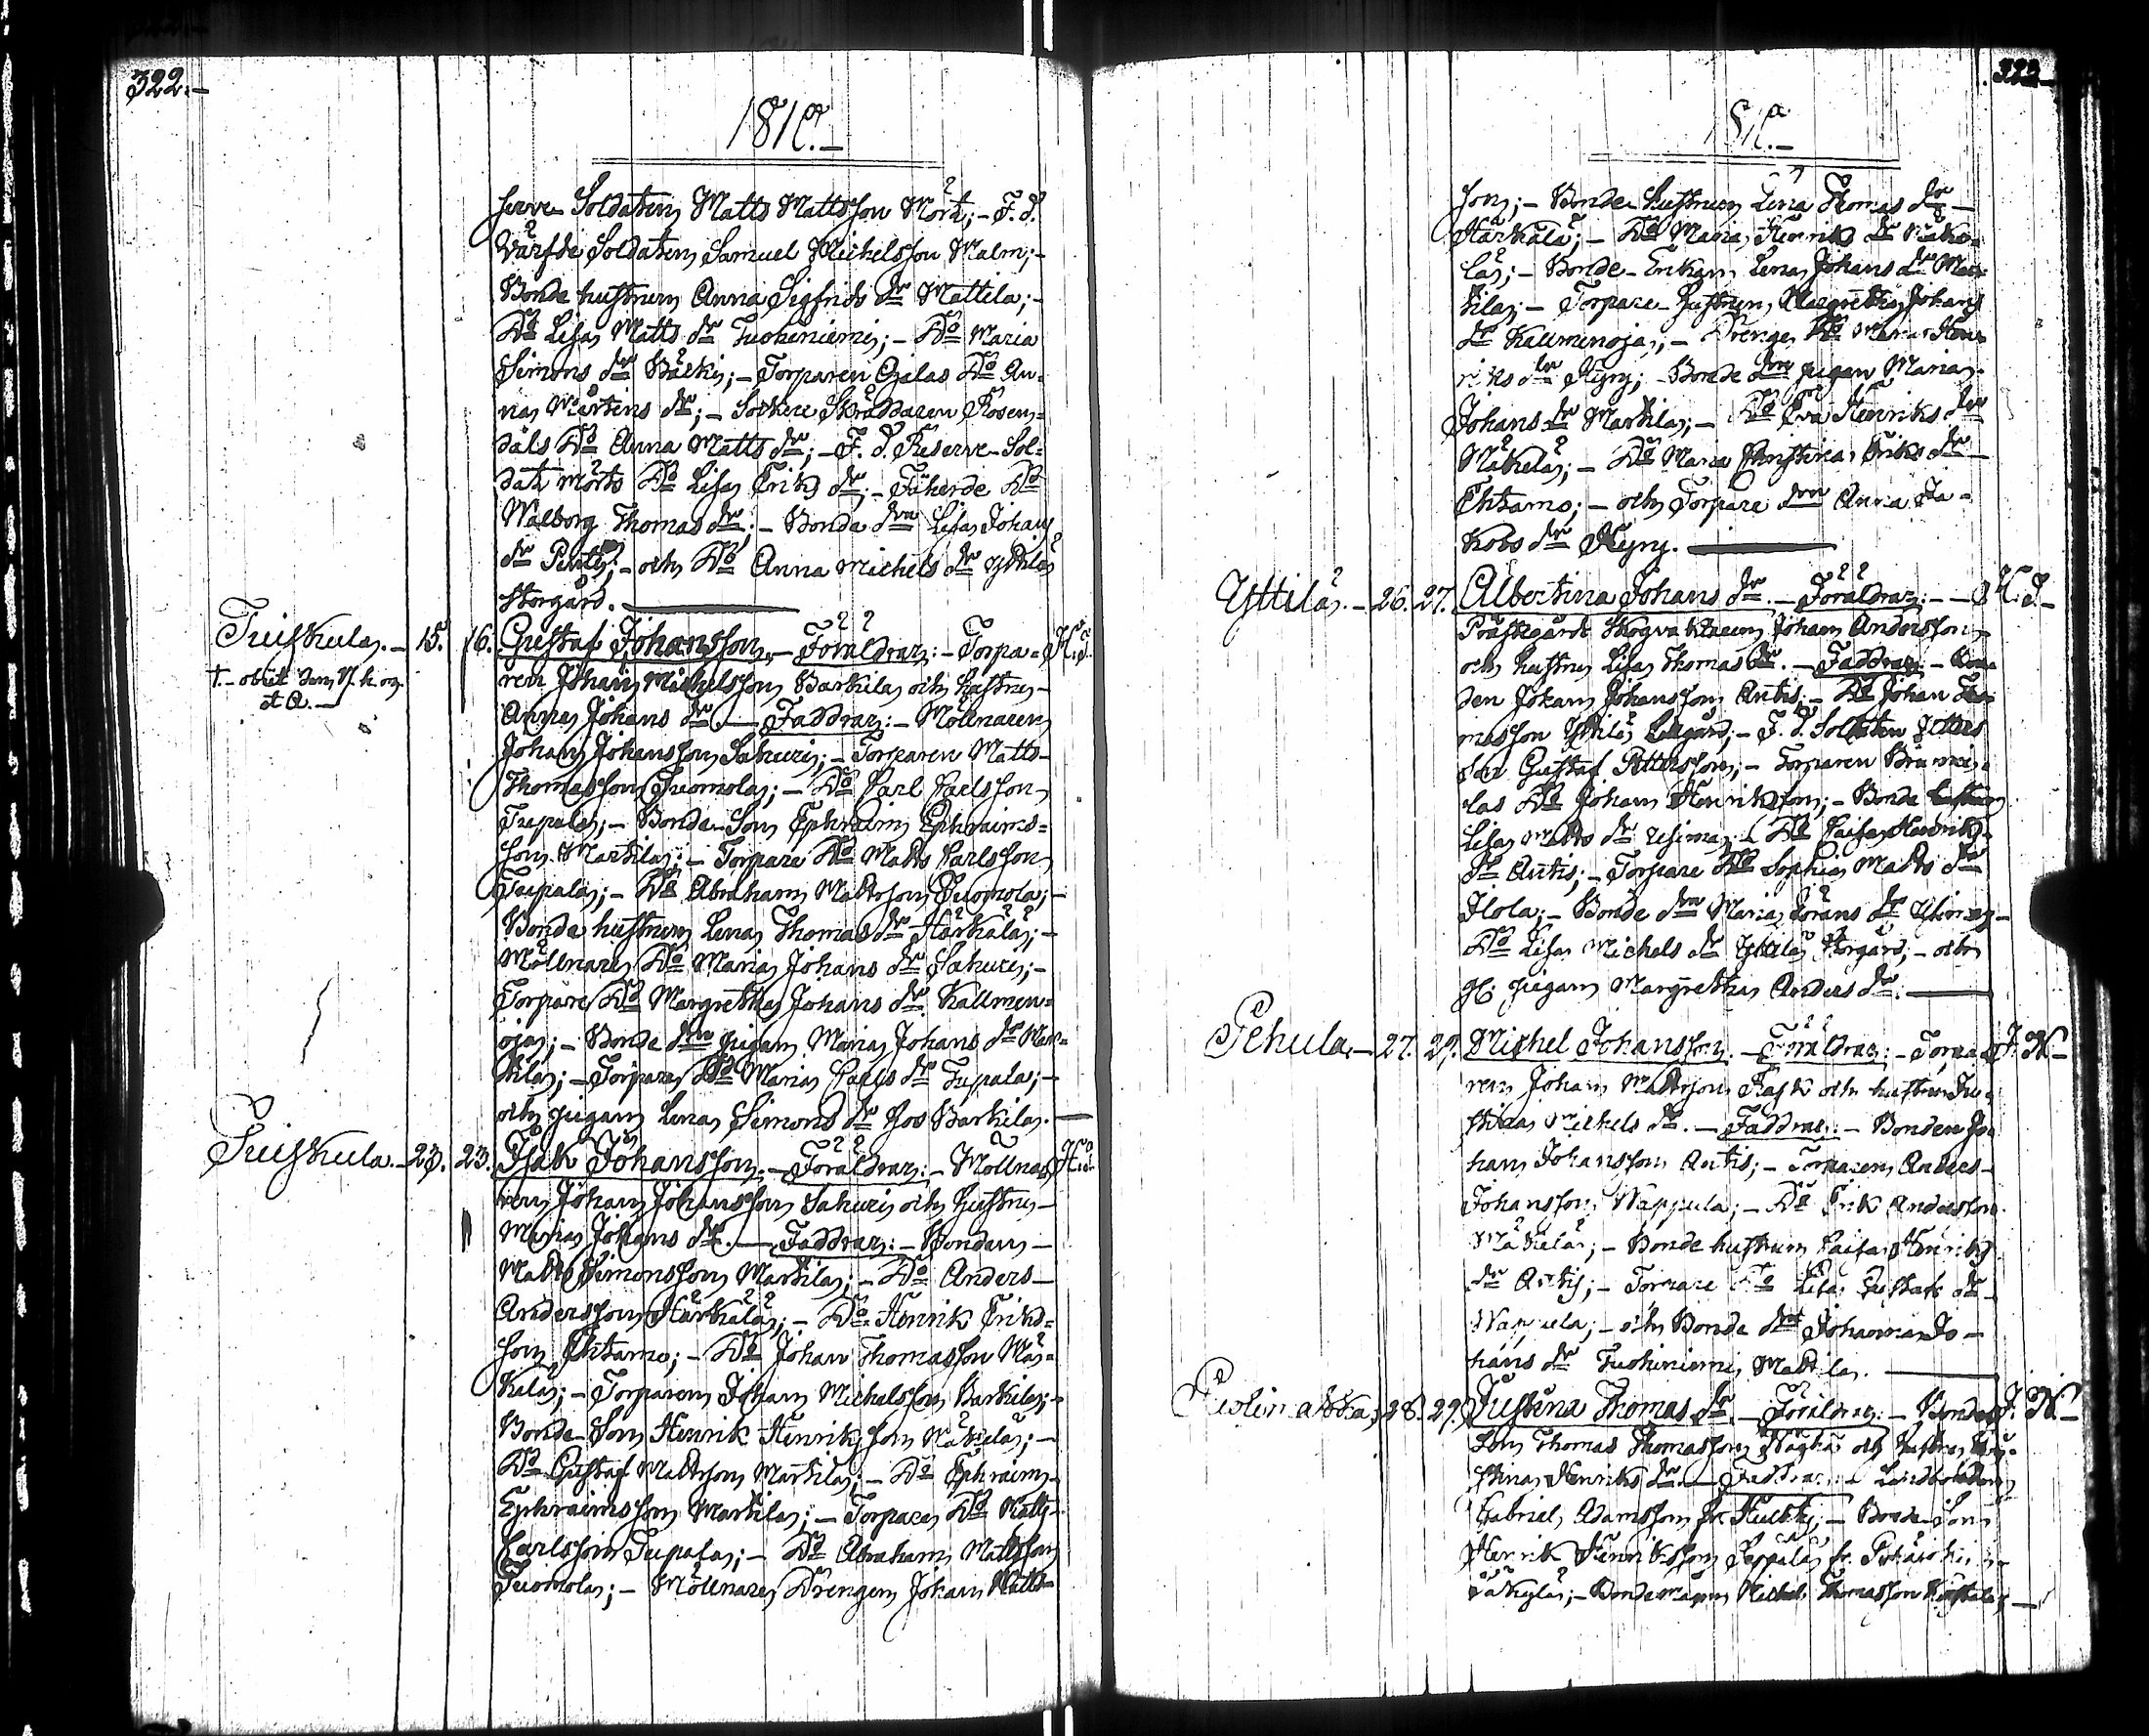 322.–
1810.–
serve Soldaten Matts Mattsson Mört; – F. d.
Värfde Soldaten Samuel Michelsson Malm; –
Bonde hustrun Anna Sigfrids dr Mattila; –
Do Lisa Matts dr Tuohiniemi; – Do Maria
Simons dr Bärki; – Torparen Ojalas Do An-
na Mårtens dr; – Sockne Skräddaren Rosen-
dals Do Anna Matts dr; – F. d. Reserve-Sol-
dat Mörts Do Lisa Eriks dr; – Do
Walborg Thomas dr; – Bonde drn Lisa Johans
dr Pentti; – och Do Anna Michels dr Yttilä
Storgård.
Tuiskula. – 15. 16. Gustaf Johansson. – Föräldrar: – Torpa- H. J.
†. – obiit den
et a. –
ren Johan Michelsson Barkila och hustru –
Anna Johans dr. – Faddrar: – Möllnaren
Johan Johansson Sahuri; – Torparen Matts –
Thomasson Tuomola; – Do Carl Carlsson
Tupala; – Bonde-Son Ephraim Ephraims-
son Markila; – Torpare Do Matts Carlsson
Tupala; – Do Abraham Mattsson Tuomola; –
Bonde hustrun Lena Thomas dr Härkälä; –
Möllnare Do Maria Johans dr Sahuri; –
Torpare Do Margretha Johans dr Kallmen-
oja; – Bonde drn pigan Maria Johans dr Mar-
kila; – Torpare Do Maria Carls dr Tupala; –
och pigan Lena Simons dr hos Barkila. –
Tuiskula. – 23. 23. Isak Johansson. – Föräldrar: – Möllna- H. J.
ren Johan Johansson Sahuri och hustru –
Maria Johans dr. – Faddrar: – Bonden –
Matts Simonsson Markila; – Do Anders –
Andersson Härkälä; – Do Henrik Eriks-
son Ehtamo; – Do Johan Thomasson Mä-
kelä; – Torparen Johan Michelsson Barkila; –
Bonde-Son Henrik Henriksson Mäkelä; –
Do Gustaf Mattsson Markila; – Do Ephraim
Ephraimsson Markila; – Torpare Do Matts
Carlsson Tupala; – Do Abraham Mattsson
Tuomola; – Möllnare Drengen Johan Matts-
323.–
1810.–
son; – Bonde hustrun Lena Thomas dr –
Härkälä; – Do Maria Henriks dr Mäke-
lä; – Bonde-Enkan Lena Johans dr Mar-
kila; – Torpare-hustrun Margretha Johans
dr Kallmenoja; – Drenge Do Maria Hen-
riks dr Kyry; – Bonde drn pigan Maria
Johans dr Markila; – Do Eva Henriks dr
Mäkelä; – Do Maria Christina Eriks dr
Ehtamo; – och Torpare drn Anna Ja-
kobs dr Kyry.
Yttilä. – 26. 27. Albertina Johans dr. – Föräldrar: – H. J. –
Prästgårds Skogvaktaren Johan Andersson
och hustru Lisa Thomas dr. – Faddrar: – Bon-
den Johan Johansson Antti; – Do Johan Tho-
masson Yttilä Lillgård; – F. d. Soldaten
Gustaf Pettersson; – Torparen
las Do Johan Henriksson; – Bonde hustrun
Lisa Matts dr Uusima; – Do Caisa Henriks
dr Antti; – Torpare Do Sophia Matts dr
Ilola; – Bonde drn Maria Görans dr
Do Lisa Michels dr Yttilä Storgård; – och
pigan Margretha Anders dr.
Pehula. – 27. 29. Michel Johansson. – Föräldrar: – Torpa- J. N –
ren Johan Mattsson Rask och hustru Ju-
stina Michels dr. – Faddrar: – Bonden Jo-
han Johansson Antti; – Torparen Anders –
Johansson Nappula; – Do Erik Andersson
Mäkelä; – Bonde hustrun Caisa Henriks
dr Antti; – Torpare Do Lisa Gustafs dr –
Nappula; – och Bonde drn Johanna Jo-
hans dr Tuohiniemi Mattila.
28. 29. Justina Thomas dr. – Föräldrar: – Bonde J. N –
Son Thomas Thomasson och hustru
stina Henriks dr. – Faddrar: –
Gabriel Adamsson fr. – Bonde-Son
Henrik Henriksson
– Bonde Michel Thomasson